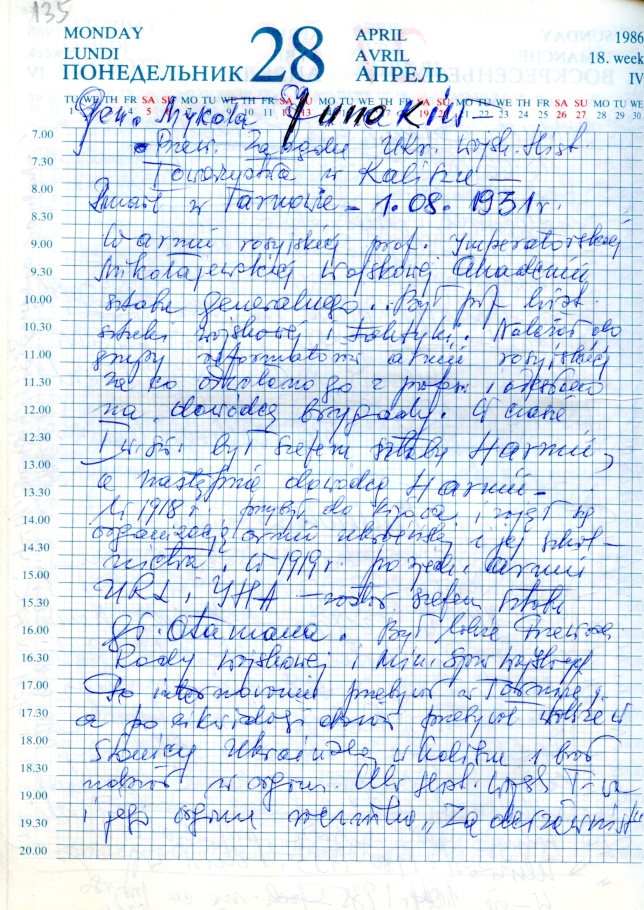 135
MONDAY
LUNDI
ПОНЕДЕЛЬНИК
28
APRIL
AVRIL
АПРЕЛЬ
1986
18. week
IV
TU WE TH FR SA SU MO TU WE TH FR SA SU MO TU WE TH FR SA SU MO TU WE TH FR SA SU MO TU WE
1 2 3 4 5 6 7 8 9 10 11 12 13 14 15 16 17 18 19 20 21 22 23 24 25 26 27 28 29 30
Gen. Mykoła Junakiw
7.00
Zarządu Ukr. Wojsk. Hist.
7.30
Towarzystwa w Kaliszu —
8.00
Zmarł w Tarnowie – 1.08. 1931 r.
8.30
9.00
W armii rosyjskiej prof. Imperatorskiej
9.30
Mikołajewskiej Wojskowej Akademii
10.00
sztabu generalnego. Był prof. hist.
10.30
sztuki wojskowej i taktyki. Należał do
11.00
grupy reformatorów armii rosyjskiej
11.30
za co odwołano go z prof. i
12.00
na dowódcę brygady. W czasie
12.30
I w. św. był szefem sztabu armii,
13.00
a następnie dowódcą armii –
13.30
W 1918 r. przybył do Kijowa i zajął się
14.00
organizacją armii ukraińskiej i jej szkol-
14.30
nictwa. W 1919 r. po armii
15.00
URL i УНА — został szefem sztabu
15.30
gł. Otamana. Był także
16.00
Rady wojskowej i Min. Spraw Wojskowych
16.30
Po internowaniu przebywał w Tarnowie,
17.00
a po likwidacji obozów przebywał także w
17.30
Stanicy Ukraińskiej w Kaliszu i brał
18.00
udział w organ. Ukr. Hist. Wojsk. T-wa
18.30
i jego organu rocznika „Za derżawnist"
19.00
19.30
20.00